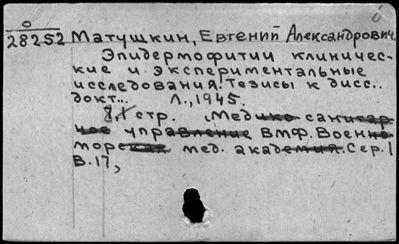 0
28252 Матушкин, Евгений Александрович.
Эпидермофитии клиничес-
кие и экспериментальные
исследования. Тезисы к дисс..
докт... Л., 1945.
8,1 стр. Медико санитар-
ное управление ВМФ. Военно
морская мед. академия. Сер. 1
В. 17,